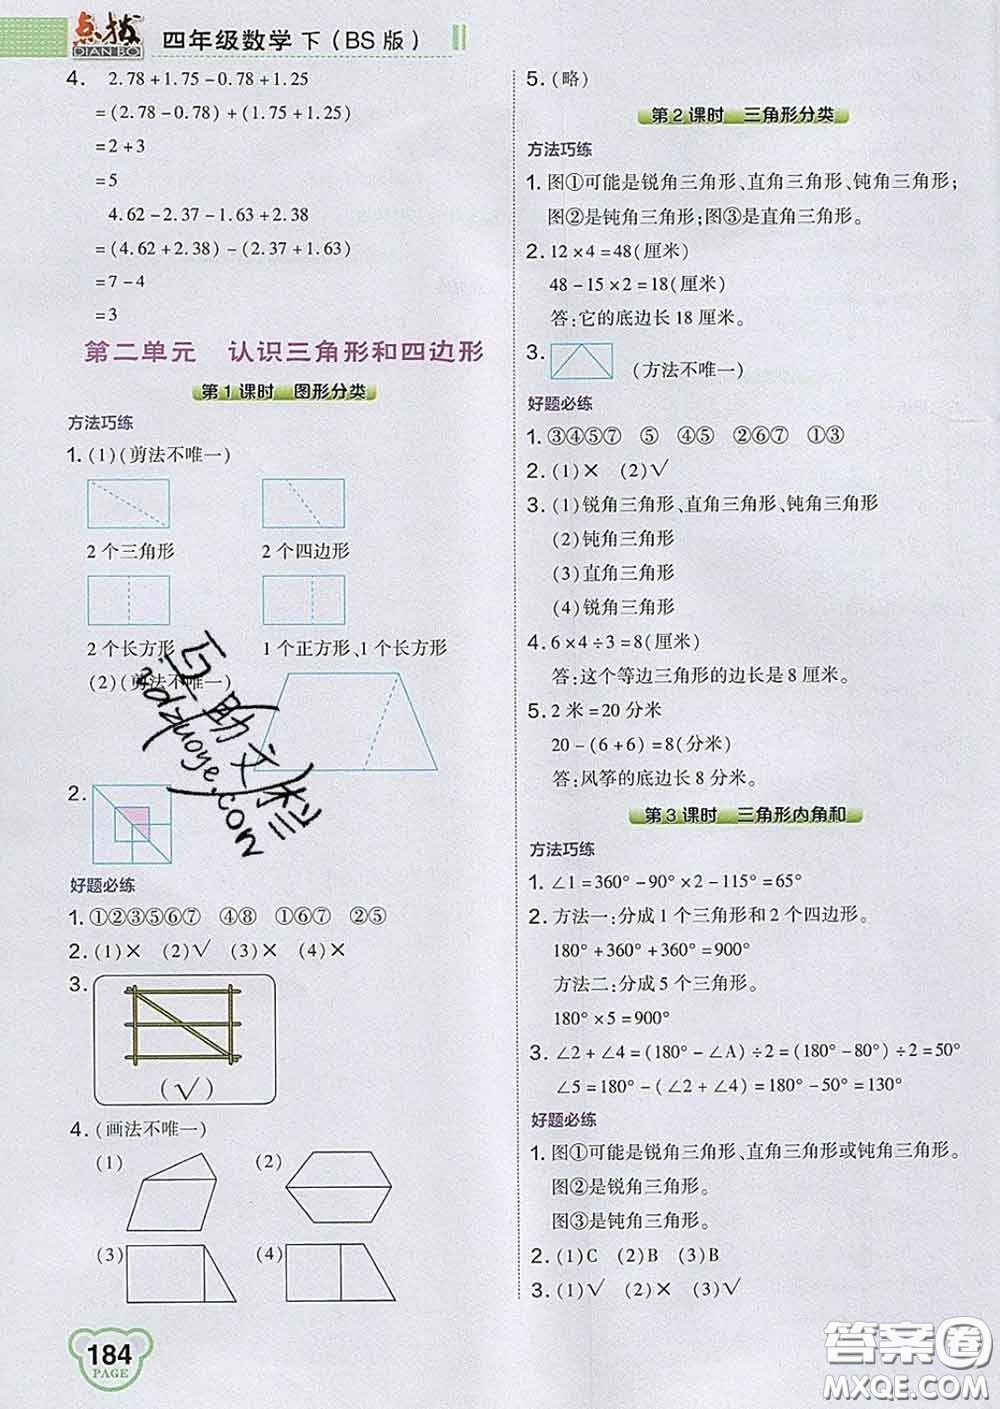 点拨
DIAN BO
四年级数学 下（BS版）
4. 2.78+1.75-0.78+1.25
=(2.78-0.78)+(1.75+1.25)
=2+3
=5
4.62-2.37-1.63+2.38
=(4.62+2.38)-(2.37+1.63)
=7-4
=3
第二单元 认识三角形和四边形
第1课时 图形分类
方法巧练
1.(1)(剪法不唯一)
2个三角形 2个四边形
2个长方形 1个正方形、1个长方形
(2)(剪法不唯一)
2.
好题必练
1.①②③⑤⑥⑦ ④⑧ ①③⑥⑦ ②⑤
2.(1)× (2)√ (3)× (4)×
3.
(√)
4.(画法不唯一)
(1) (2)
(3) (4)
184
PAGE
5.(略)
第2课时 三角形分类
方法巧练
1.图①可能是锐角三角形、直角三角形、钝角三角形;
图②是钝角三角形;图③是直角三角形。
2.12×4=48(厘米)
48-15×2=18(厘米)
答:它的底边长18厘米。
3. (方法不唯一)
好题必练
1.③④⑤⑦ ⑤ ④⑤ ②⑥⑦ ①③
2.(1)× (2)√
3.(1)锐角三角形、直角三角形、钝角三角形
(2)钝角三角形
(3)直角三角形
(4)锐角三角形
4.6×4÷3=8(厘米)
答:这个等边三角形的边长是8厘米。
5.2米=20分米
20-(6+6)=8(分米)
答:风筝的底边长8分米。
第3课时 三角形内角和
方法巧练
1.∠1=360°-90°×2-115°=65°
2.方法一:分成1个三角形和2个四边形。
180°+360°+360°=900°
方法二:分成5个三角形。
180°×5=900°
3.∠2+∠4=(180°-∠A)÷2=(180°-80°)÷2=50°
∠5=180°-(∠2+∠4)=180°-50°=130°
好题必练
1.图①可能是锐角三角形、直角三角形或钝角三角形。
图②是锐角三角形。
图③是钝角三角形。
2.(1)C (2)B (3)B
3.(1)√ (2)√ (3)√
答案圈
MXQE.COM